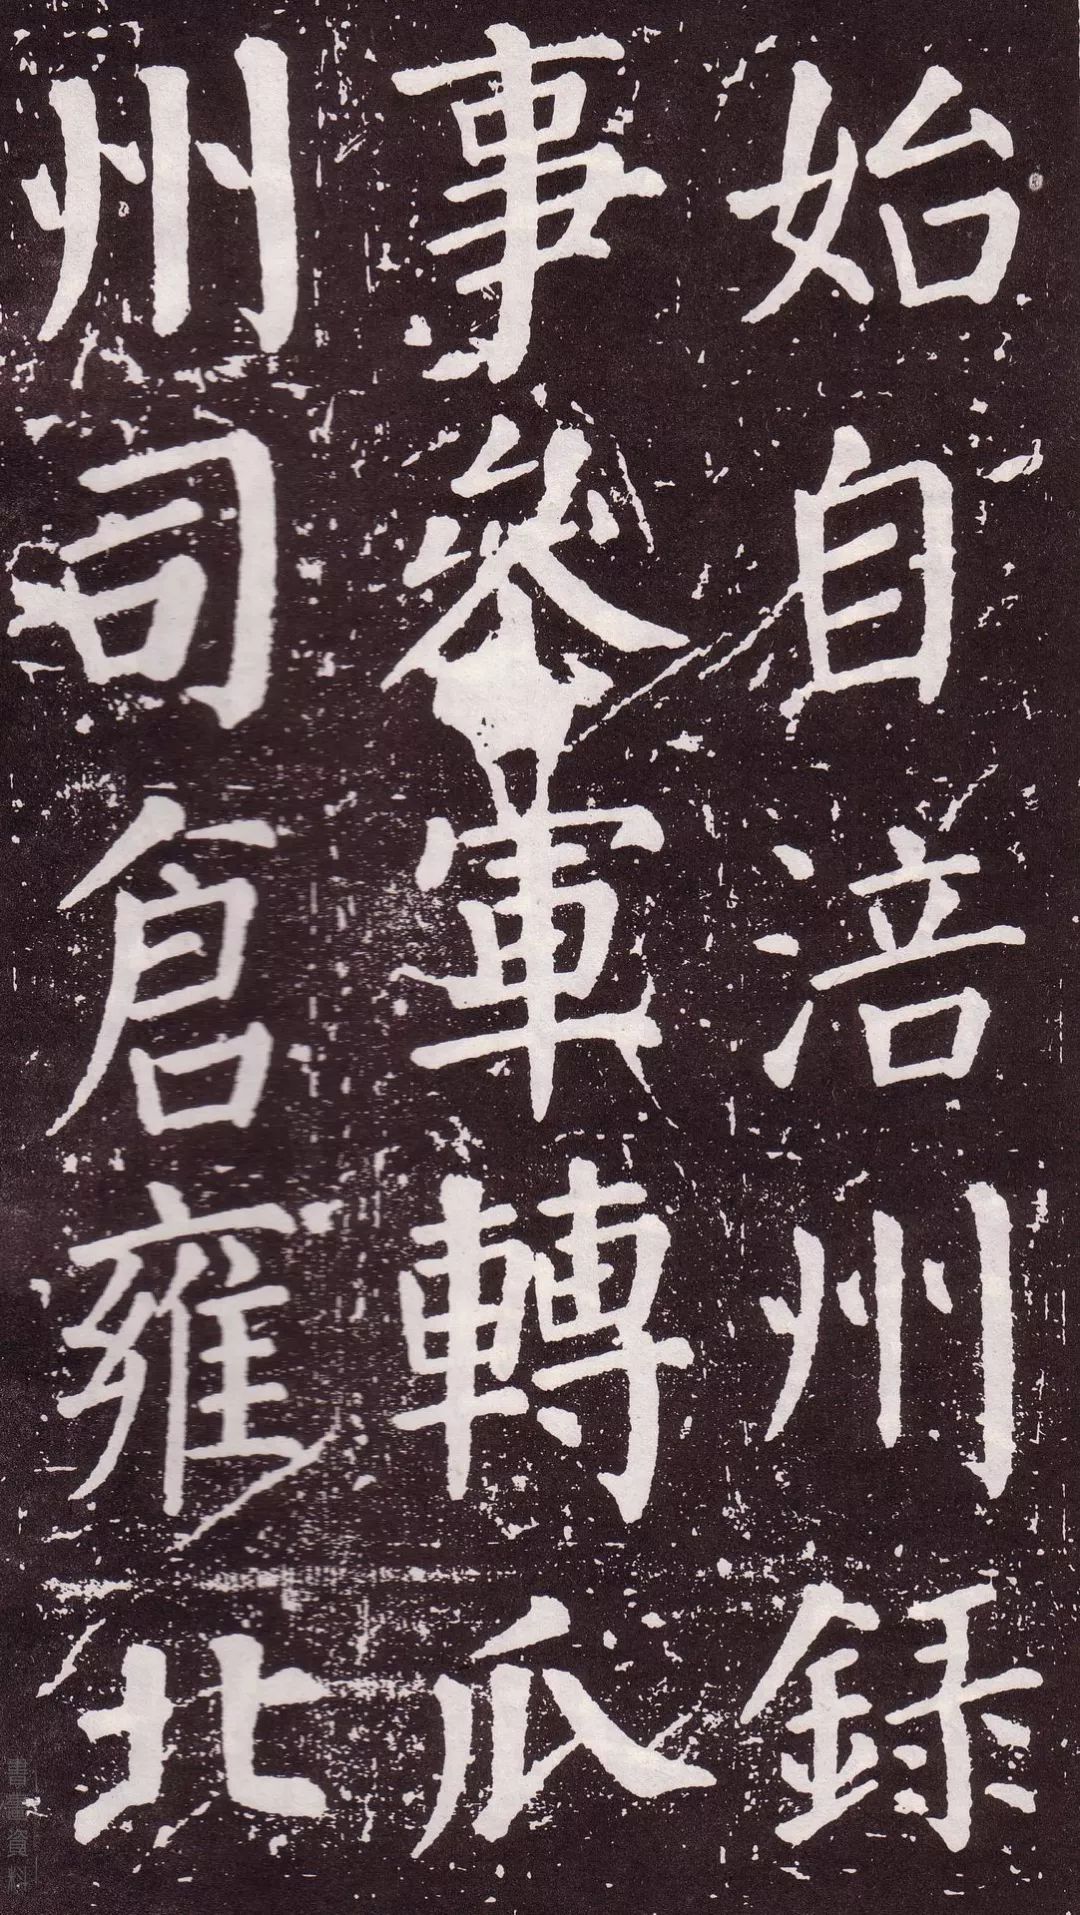 始自涪州錄
事參軍轉瓜
州司倉雍北
書畫資料